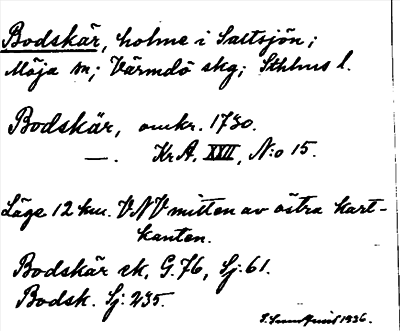 Bodskär, holme i Saltsjön;
Möja sn; Värmdö skg; Sthlms l.
Bodskär, omkr. 1730.
—. KrA, XXII, N:o 15.
Läge 12 km. VNV mitten av östra kart-
kanten.
Bodskär sk, G.76, Sj.61.
Bodsk. Sj. 235.
1936.